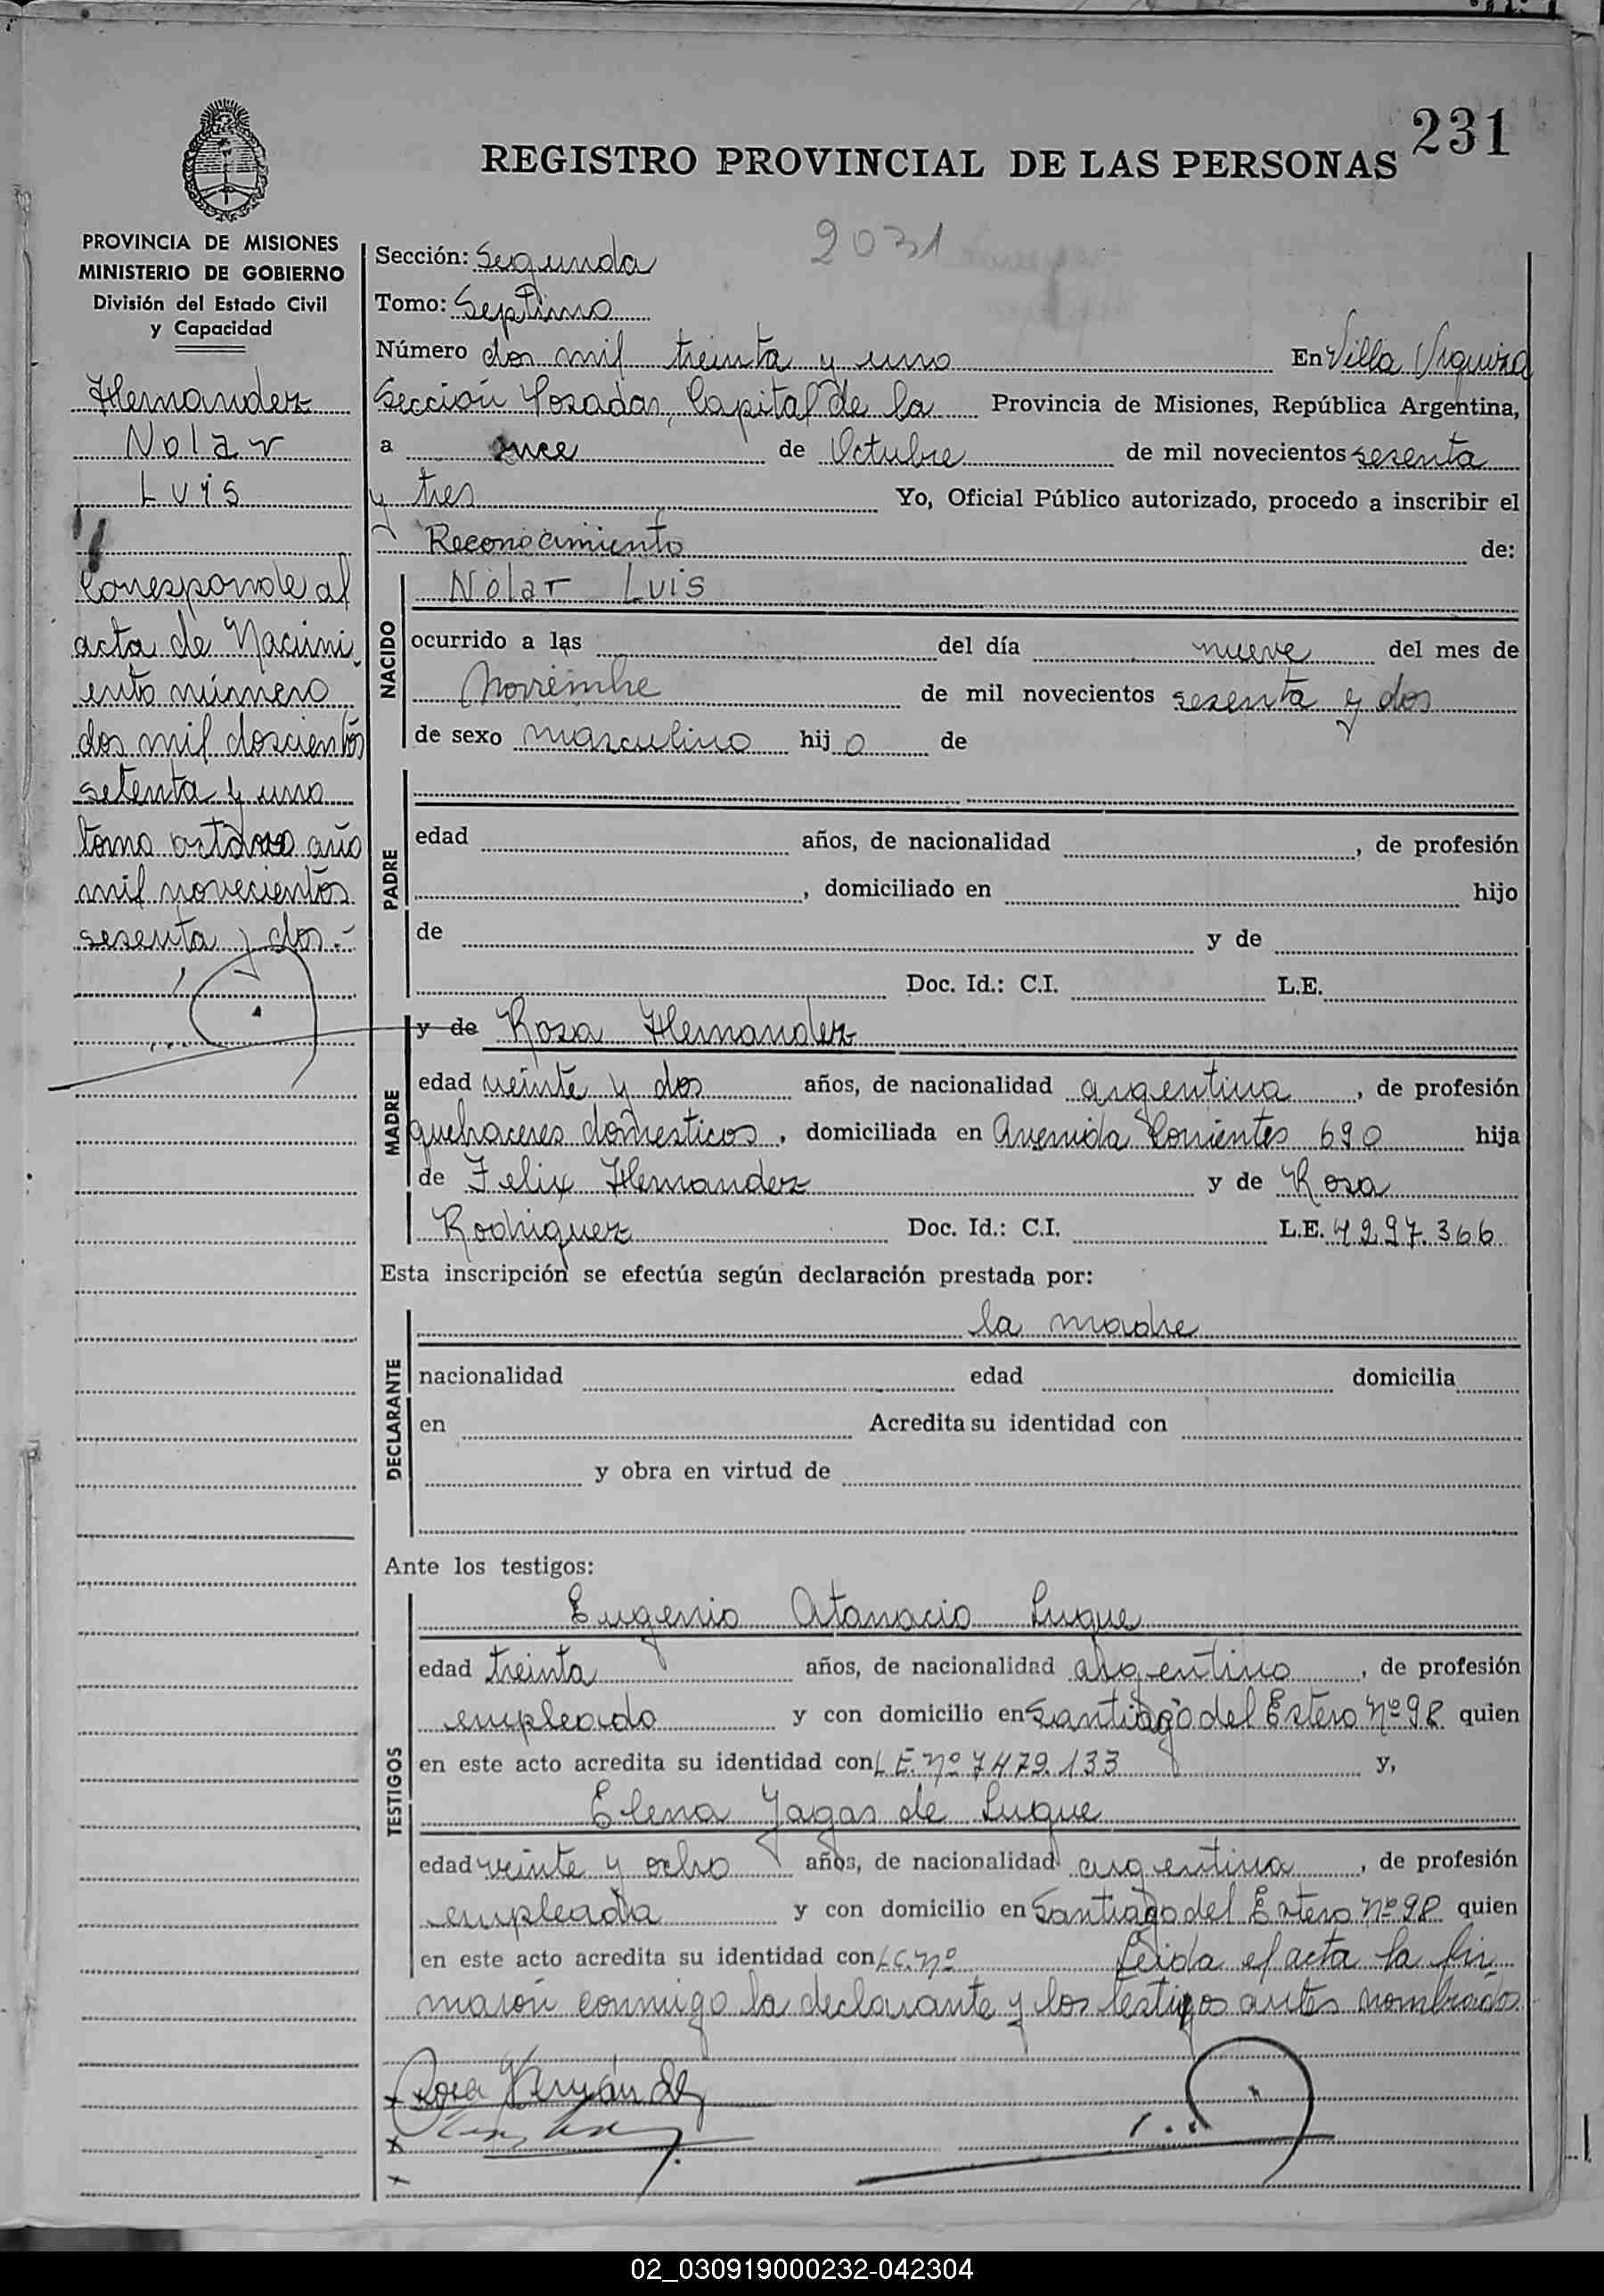 231
REGISTRO PROVINCIAL DE LAS PERSONAS
2031
PROVINCIA DE MISIONES
MINISTERIO DE GOBIERNO
División del Estado Civil
y Capacidad
Hernandez
Nolar
Luis
Corresponde al
acta de Nacimi
ento número
dos mil doscientos
setenta y uno
tomo octavo año
mil novecientos
sesenta y dos.-
Sección: Segunda
Tomo: Septimo
Número dos mil treinta y uno En Villa Urquiza
Sección Posadas, Capital de la Provincia de Misiones, República Argentina,
a once de Octubre de mil novecientos sesenta
y tres Yo, Oficial Público autorizado, procedo a inscribir el
Reconocimiento de:
NACIDO
Nolar Luis
ocurrido a las del día nueve del mes de
Noviembre de mil novecientos sesenta y dos
de sexo masculino hijo de
PADRE
edad años, de nacionalidad , de profesión
, domiciliado en hijo
de y de
Doc. Id.: C.I. L.E.
MADRE
y de Rosa Hernandez
edad veinte y dos años, de nacionalidad argentina, de profesión
quehaceres domesticos, domiciliada en Avenida Corrientes 690 hija
de Felix Hernandez y de Rosa
Rodriguez Doc. Id.: C.I. L.E. 4.297.366
Esta inscripción se efectúa según declaración prestada por:
DECLARANTE
la madre
nacionalidad edad domicilia
en Acredita su identidad con
y obra en virtud de
Ante los testigos:
TESTIGOS
Eugenio Atanacio Luque
edad treinta años, de nacionalidad argentino, de profesión
empleado y con domicilio en Santiago del Estero Nº 98 quien
en este acto acredita su identidad con L E. Nº 7479.133 y,
Elena Yagas de Luque
edad veinte y ocho años, de nacionalidad argentina, de profesión
empleada y con domicilio en Santiago del Estero Nº 98 quien
en este acto acredita su identidad con L C. Nº Leida el acta la fir
maron conmigo la declarante y los testigos antes nombrados
Rosa Hernández
02_030919000232-042304